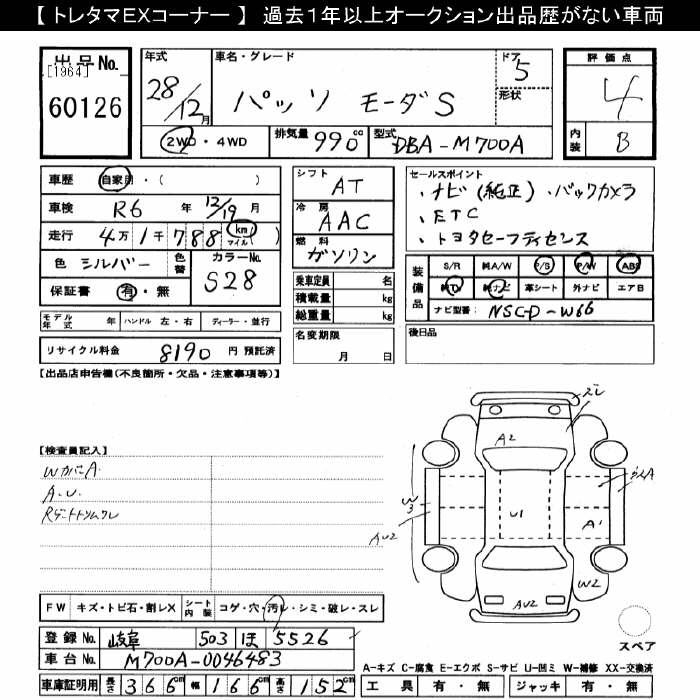 【 トレタマEXコーナー 】 過去1年以上オークション出品歴がない車両
出品 No.
[1964]
60126
年式
28/12月
車名・グレード
パッソ モーダS
ドア 5
形状
2WD・4WD
排気量 990 cc
型式 DBA-M700A
評価点
4
内装 B
車歴 自家用・( )
車検 R6 年 12/19 月
走行 4万1千788 (km マイル)( )
色 シルバー 色替
カラーNo. S28
保証書 有・無
シフト AT
冷房 AAC
燃料 ガソリン
乗車定員 名
積載量 kg
総重量 kg
セールスポイント
・ナビ(純正)・バックカメラ
・ETC
・トヨタセーフティセンス
装備品
S/R 純A/W P/S P/W ABS
純TV 純ナビ 革シート 外ナビ エアB
ナビ型番: NSCD-W66
モデル年式 年 ハンドル 左・右 ディーラー・並行
名変期限 月 日
後日品
リサイクル料金 8190 円 預託済
【出品店申告欄(不良箇所・欠品・注意事項等)】
【検査員記入】
WカバーA.
A.U.
Rゲートトリムワレ
ズレ
A2
W3
AU2
U1
A1
W2
AU2
FW キズ・トビ石・割レX シート内装 コゲ・穴・汚レ・シミ・破レ・スレ
スペア
登録 No. 岐阜 503 ほ 5526
車台 No. M700A-0046483
A-キズ C-腐食 E-エクボ S-サビ U-凹ミ W-補修 XX-交換済
車庫証明用 長さ 366cm 幅 166cm 高さ 152cm
工具 有・無 ジャッキ 有・無